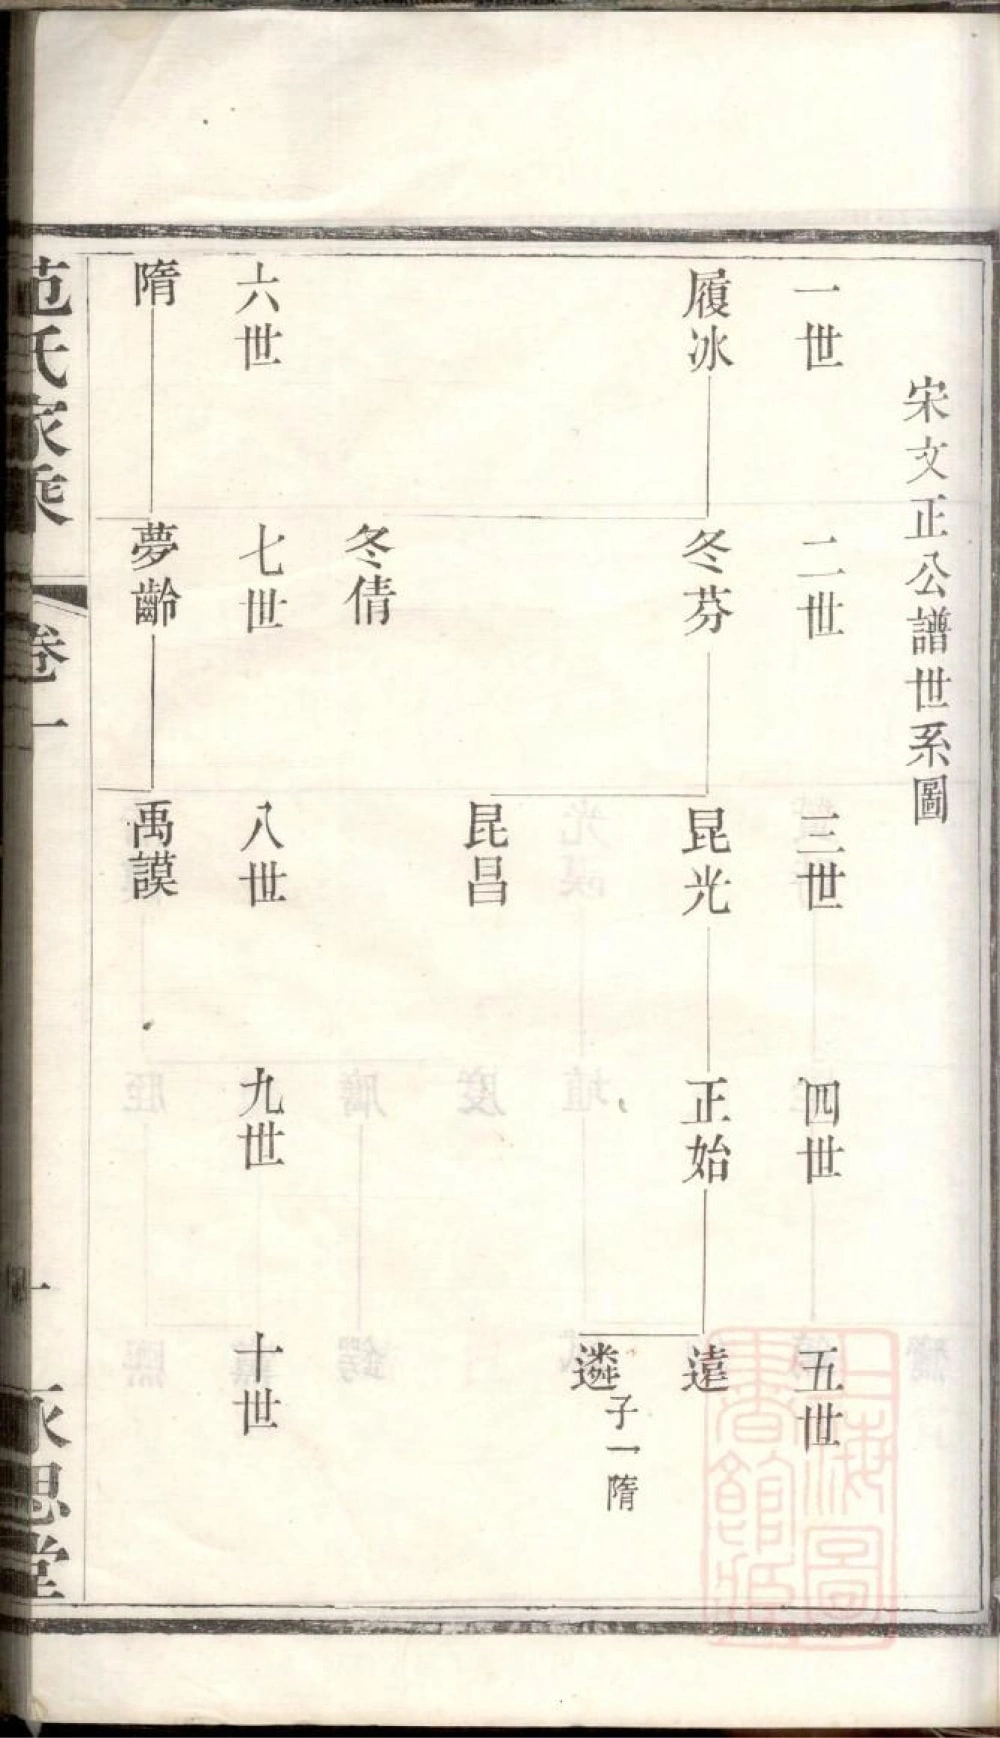 宋文正公譜世系圖
一世
二世
三世
四世
五世
履冰
冬芬
昆光
正始
遠
遴
子一隋
昆昌
冬倩
六世
七世
八世
九世
十世
隋
夢齡
禹謨
范氏家乘
卷一
一
永思堂
上海圖
書館藏